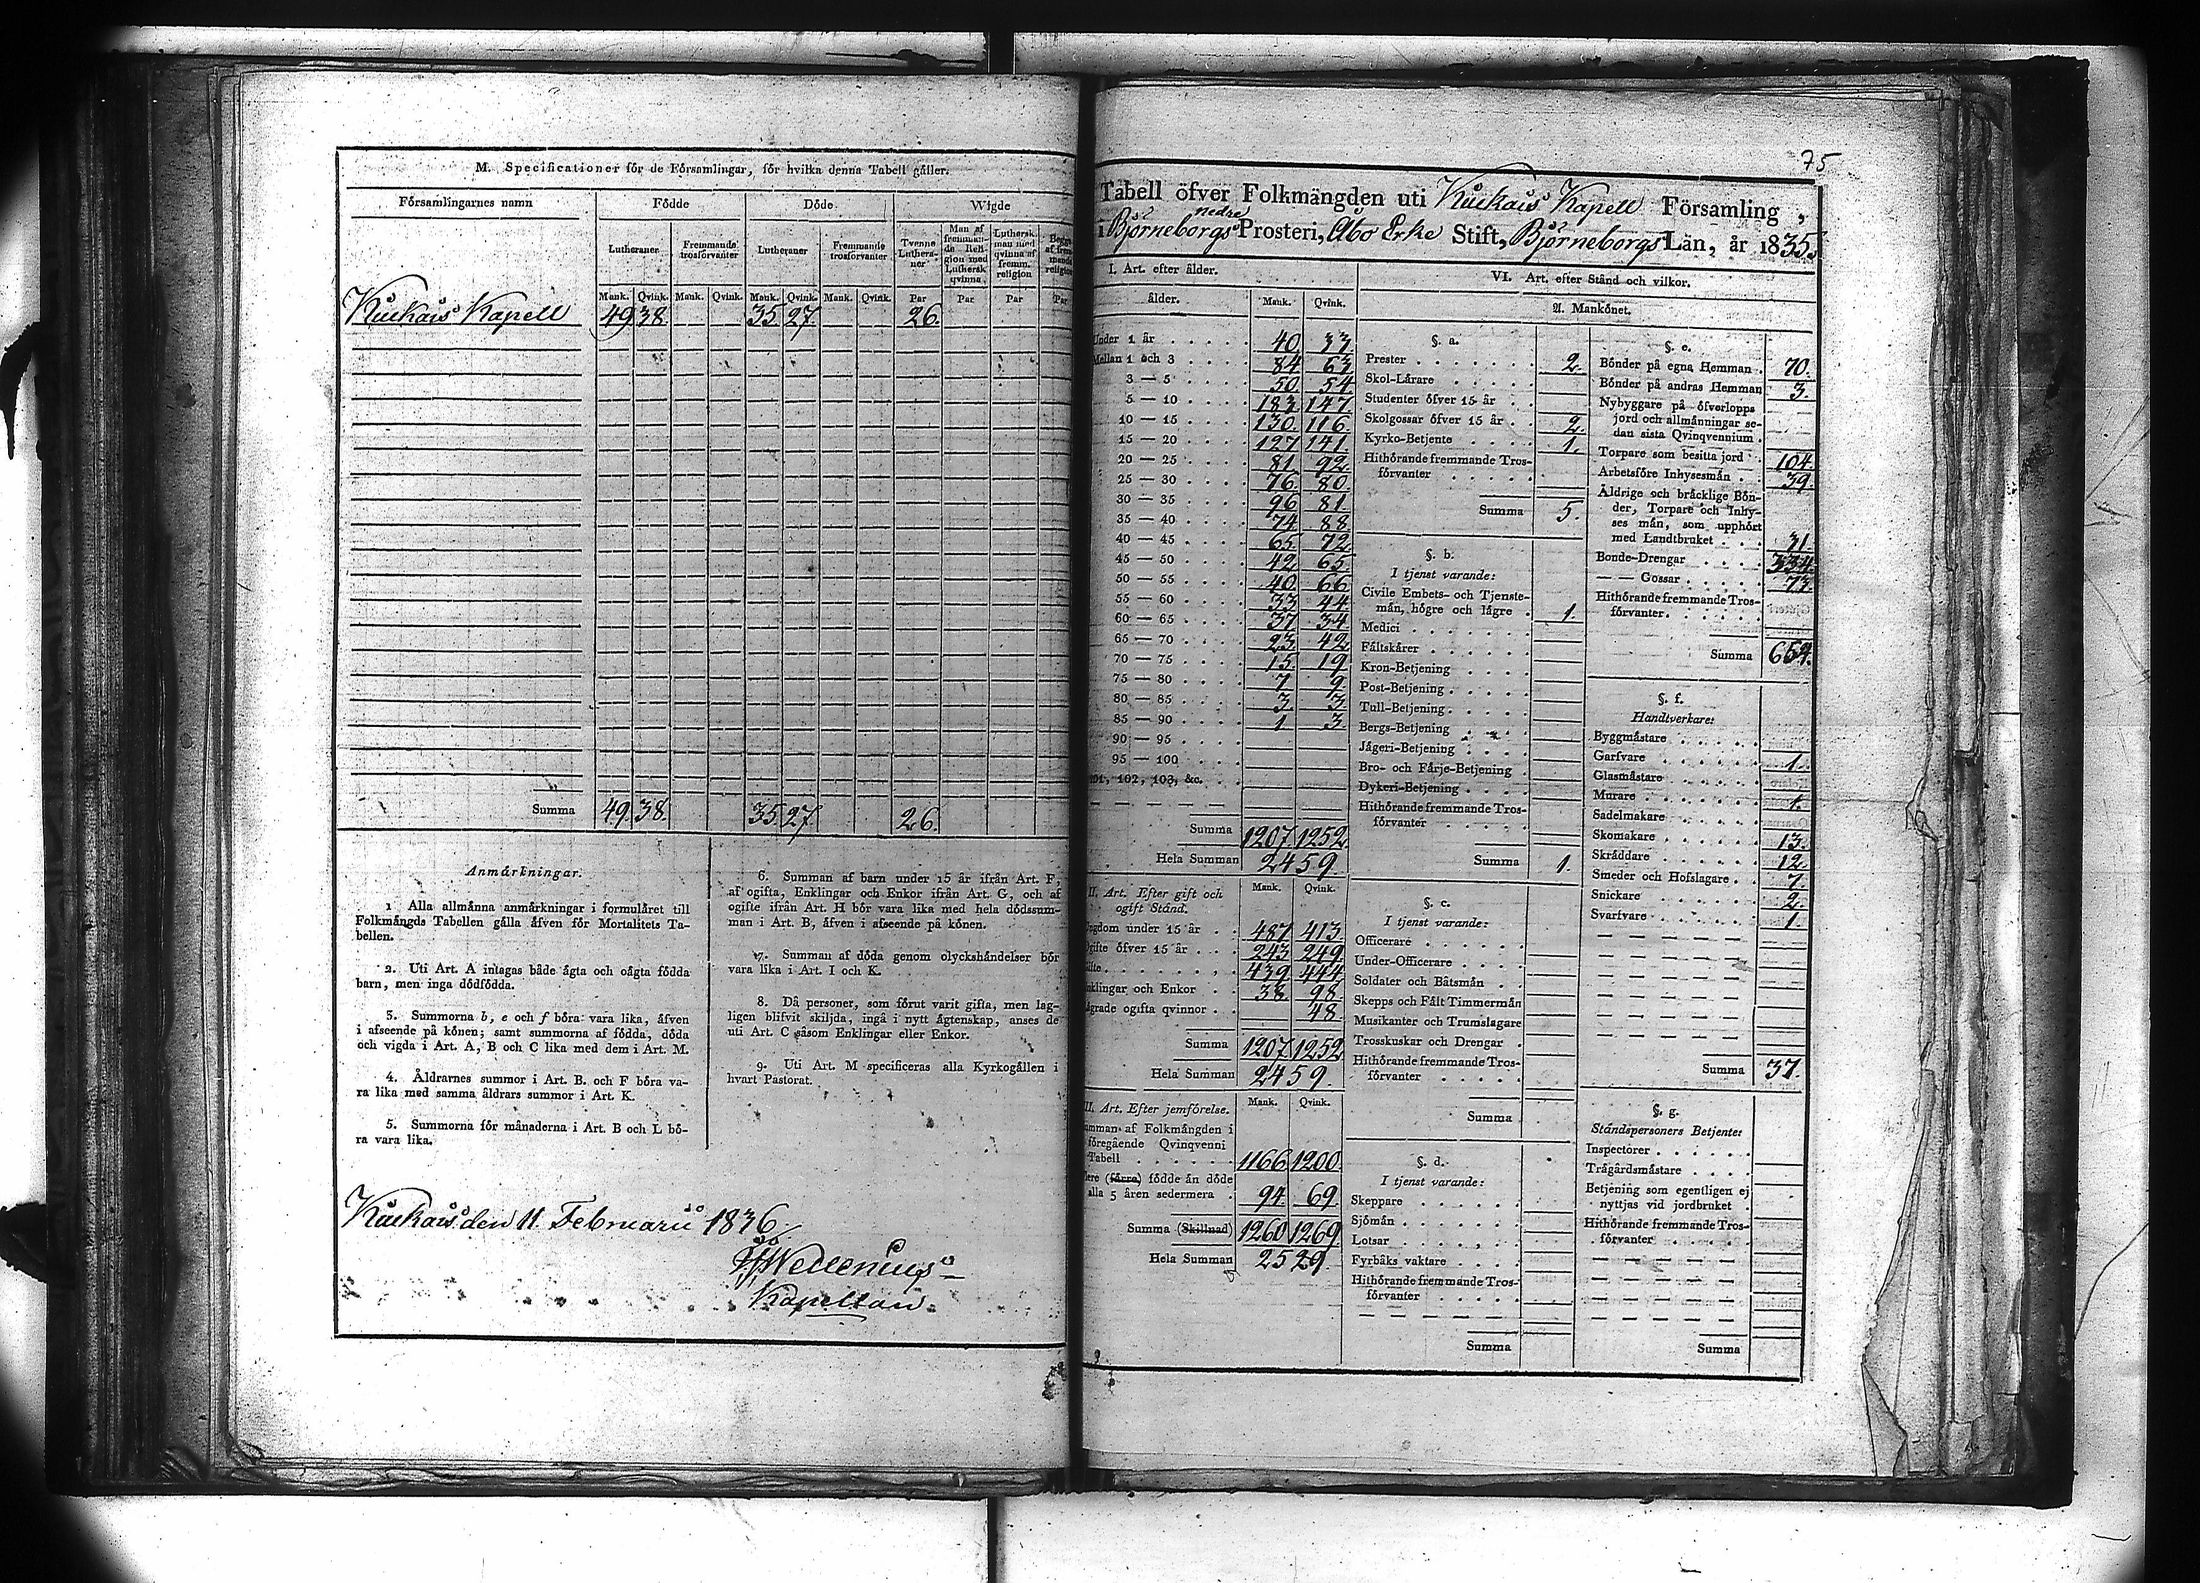 M. Specificationer för de Församlingar, för hvilka denna Tabell gäller.
Församlingarnes namn Födde Döde Wigde
Lutheraner Fremmande trosförvanter Lutheraner Fremmande trosförvanter Tvenne Lutheraner Man af fremmande Religion med Luthersk qvinna. Luthersk man med qvinna af fremm. religion
Mank. Qvink. Mank. Qvink. Mank. Qvink. Mank. Qvink. Par Par Par Par
Kuckais Kapell 49 38 35 27 26.
Summa 49. 38. 35 27. 26.
Anmärkningar.
1 Alla allmänna anmärkningar i formuläret till
Folkmängds Tabellen gälla äfven för Mortalitets Ta-
bellen.
2. Uti Art. A intagas både ägta och oägta födda
barn, men inga dödfödda.
3. Summorna b, e och f böra vara lika, äfven
i afseende på könen; samt summorna af födda, döda
och vigda i Art. A, B och C lika med dem i Art. M.
4. Åldrarnes summor i Art. B. och F böra va-
ra lika med samma åldrars summor i Art. K.
5. Summorna för månaderna i Art. B och L bö-
ra vara lika.
6. Summan af barn under 15 år ifrån Art. F,
af ogifta, Enklingar och Enkor ifrån Art. G, och af
ogifte ifrån Art. H bör vara lika med hela dödssum-
man i Art. B, äfven i afseende på könen.
7. Summan af döda genom olyckshändelser bör
vara lika i Art. I och K.
8. Då personer, som förut varit gifta, men lag-
ligen blifvit skiljda, ingå i nytt ägtenskap, anses de
uti Art. C såsom Enklingar eller Enkor.
9. Uti Art. M specificeras alla Kyrkogällen i
hvart Pastorat.
Kuckais den 11. Februarii 1836
Kapellan.
75
Tabell öfver Folkmängden uti Kuckais Kapell Församling,
i Björneborgs nedre Prosteri, Åbo Erke Stift, Björneborgs Län, år 1835.
I. Art. efter ålder.
ålder. Mank. Qvink.
Under 1 år 40. 33.
Mellan 1 och 3 84 63
3 — 5 50. 54
5 — 10 183 147.
10 — 15 130. 116.
15 — 20 127 141.
20 — 25 81. 92.
25 — 30 76. 80.
30 — 35 96 81.
35 — 40 74 88.
40 — 45 65. 72.
45 — 50 42 65.
50 — 55 40 66
55 — 60 33 44
60 — 65 37 34.
65 — 70 23. 42.
70 — 75 15 19
75 — 80 7 9.
80 — 85 3. 3
85 — 90 1 3.
90 — 95
95 — 100
101, 102, 103, &c.
Summa 1207. 1252
Hela Summan 2459.
II. Art. Efter gift och
ogift Stånd. Mank. Qvink.
Ungdom under 15 år 487 413.
Ogifte öfver 15 år 243 249
Gifte 439 444
Enklingar och Enkor 38. 98.
Lägrade ogifta qvinnor 48.
Summa 1207 1252
Hela Summan 2459.
III. Art. Efter jemförelse. Mank. Qvink.
Summan af Folkmängden i
föregående Qvinqvenni
Tabell 1166 1200
Flere (färre) födde än döde
alla 5 åren sedermera 94. 69.
Summa (Skillnad) 1260 1269
Hela Summan 2529.
VI. Art. efter Stånd och vilkor.
A. Mankönet.
§. a.
Prester 2.
Skol-Lärare
Studenter öfver 15 år
Skolgossar öfver 15 år 2.
Kyrko-Betjente 1.
Hithörande fremmande Tros-
förvanter
Summa 5.
§. b.
I tjenst varande:
Civile Embets- och Tjenste-
män, högre och lägre 1.
Medici
Fältskärer
Kron-Betjening
Post-Betjening
Tull-Betjening
Bergs-Betjening
Jägeri-Betjening
Bro- och Färje-Betjening
Dykeri-Betjening
Hithörande fremmande Tros-
förvanter
Summa 1.
§. c.
I tjenst varande:
Officerare
Under-Officerare
Soldater och Båtsmän
Skepps och Fält Timmermän
Musikanter och Trumslagare
Trosskuskar och Drengar
Hithörande fremmande Tros-
förvanter
Summa
§. d.
I tjenst varande:
Skeppare
Sjömän
Lotsar
Fyrbåks vaktare
Hithörande fremmande Tros-
förvanter
Summa
§. e.
Bönder på egna Hemman 70.
Bönder på andras Hemman 3.
Nybyggare på öfverlopps
jord och allmänningar se-
dan sista Qvinqvennium
Torpare som besitta jord 104.
Arbetsföre Inhysesmän 39.
Åldrige och bräcklige Bön-
der, Torpare och Inhy-
ses män, som upphört
med Landtbruket 31.
Bonde-Drengar 334.
— — Gossar 73.
Hithörande fremmande Tros-
förvanter
Summa 654.
§. f.
Handtverkare:
Byggmästare
Garfvare 1.
Glasmästare
Murare 1.
Sadelmakare
Skomakare 13.
Skräddare 12.
Smeder och Hofslagare 7.
Snickare 2.
Svarfvare 1.
Summa 37.
§. g.
Ståndspersoners Betjente:
Inspectorer
Trägårdsmästare
Betjening som egentligen ej
nyttjas vid jordbruket
Hithörande fremmande Tros-
förvanter
Summa